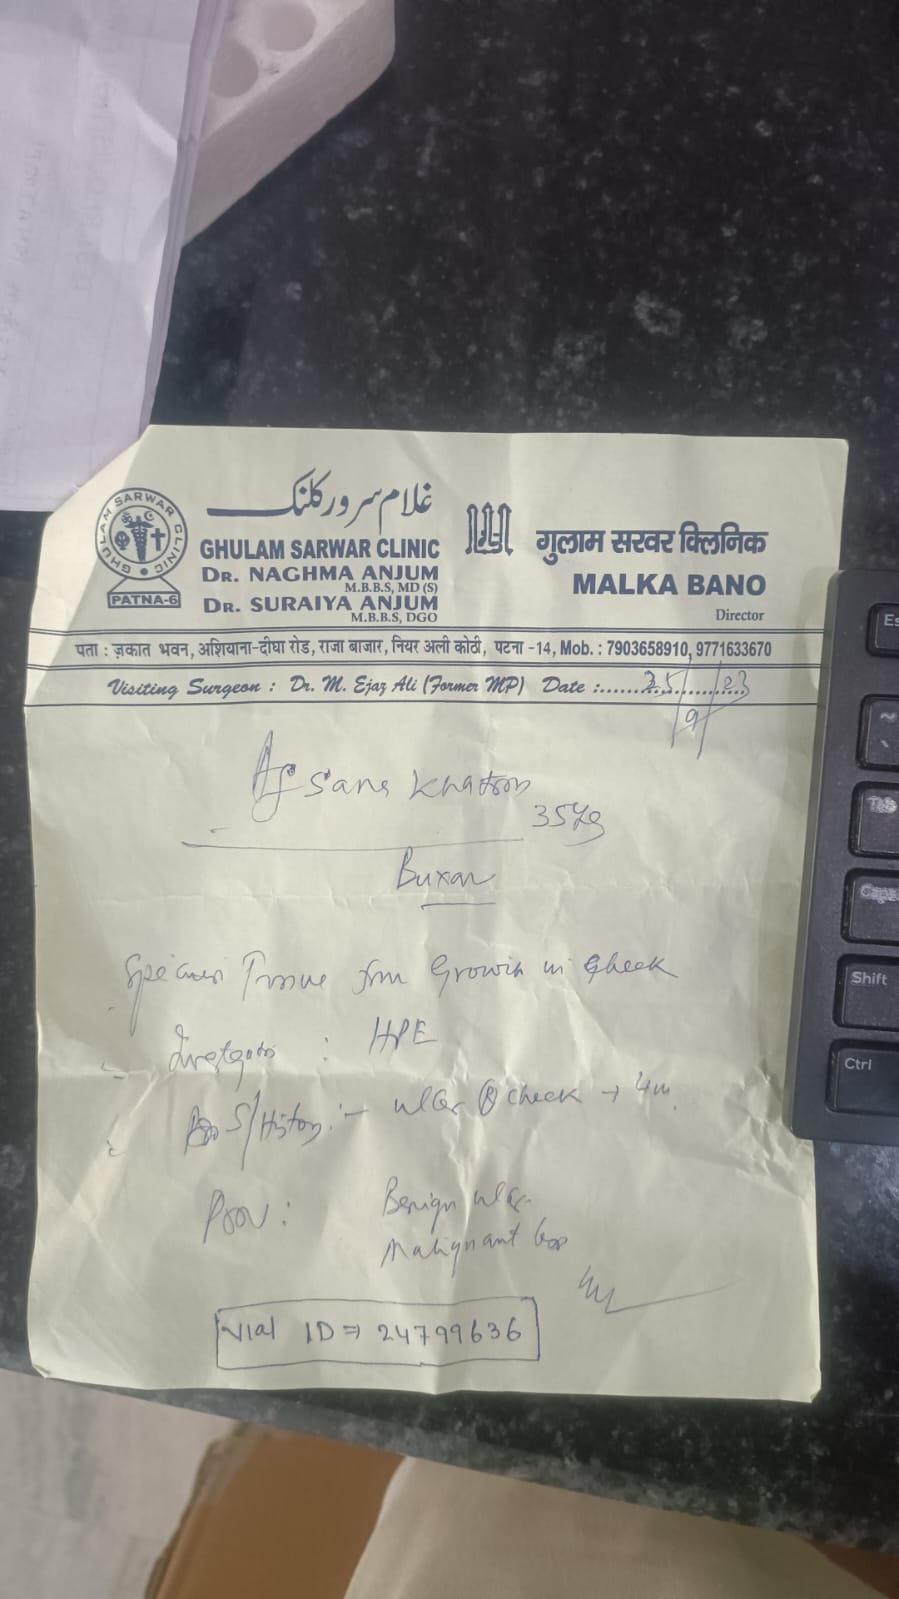 غلام سرور کلنک
GHULAM SARWAR CLINIC
DR. NAGHMA ANJUM
M.B.B.S, MD (S)
DR. SURAIYA ANJUM
M.B.B.S, DGO
GHULAM SARWAR CLINIC
PATNA-6
गुलाम सरवर क्लिनिक
MALKA BANO
Director
पता : ज़कात भवन, अशियाना-दीघा रोड, राजा बाजार, नियर अली कोठी, पटना -14, Mob. : 7903658910, 9771633670
Visiting Surgeon : Dr. M. Ejaz Ali (Former MP) Date :
Afsana Khatoon
35 Ys
Buxar
Specimen Tissue from Growth in Cheek
: HPE
S/History :- ulcer (R) cheek → 4m.
Prov : Benign ulcer
Malignant
Vial ID ⇒ 24799636
Es
~
Tab
Caps
Shift
Ctrl